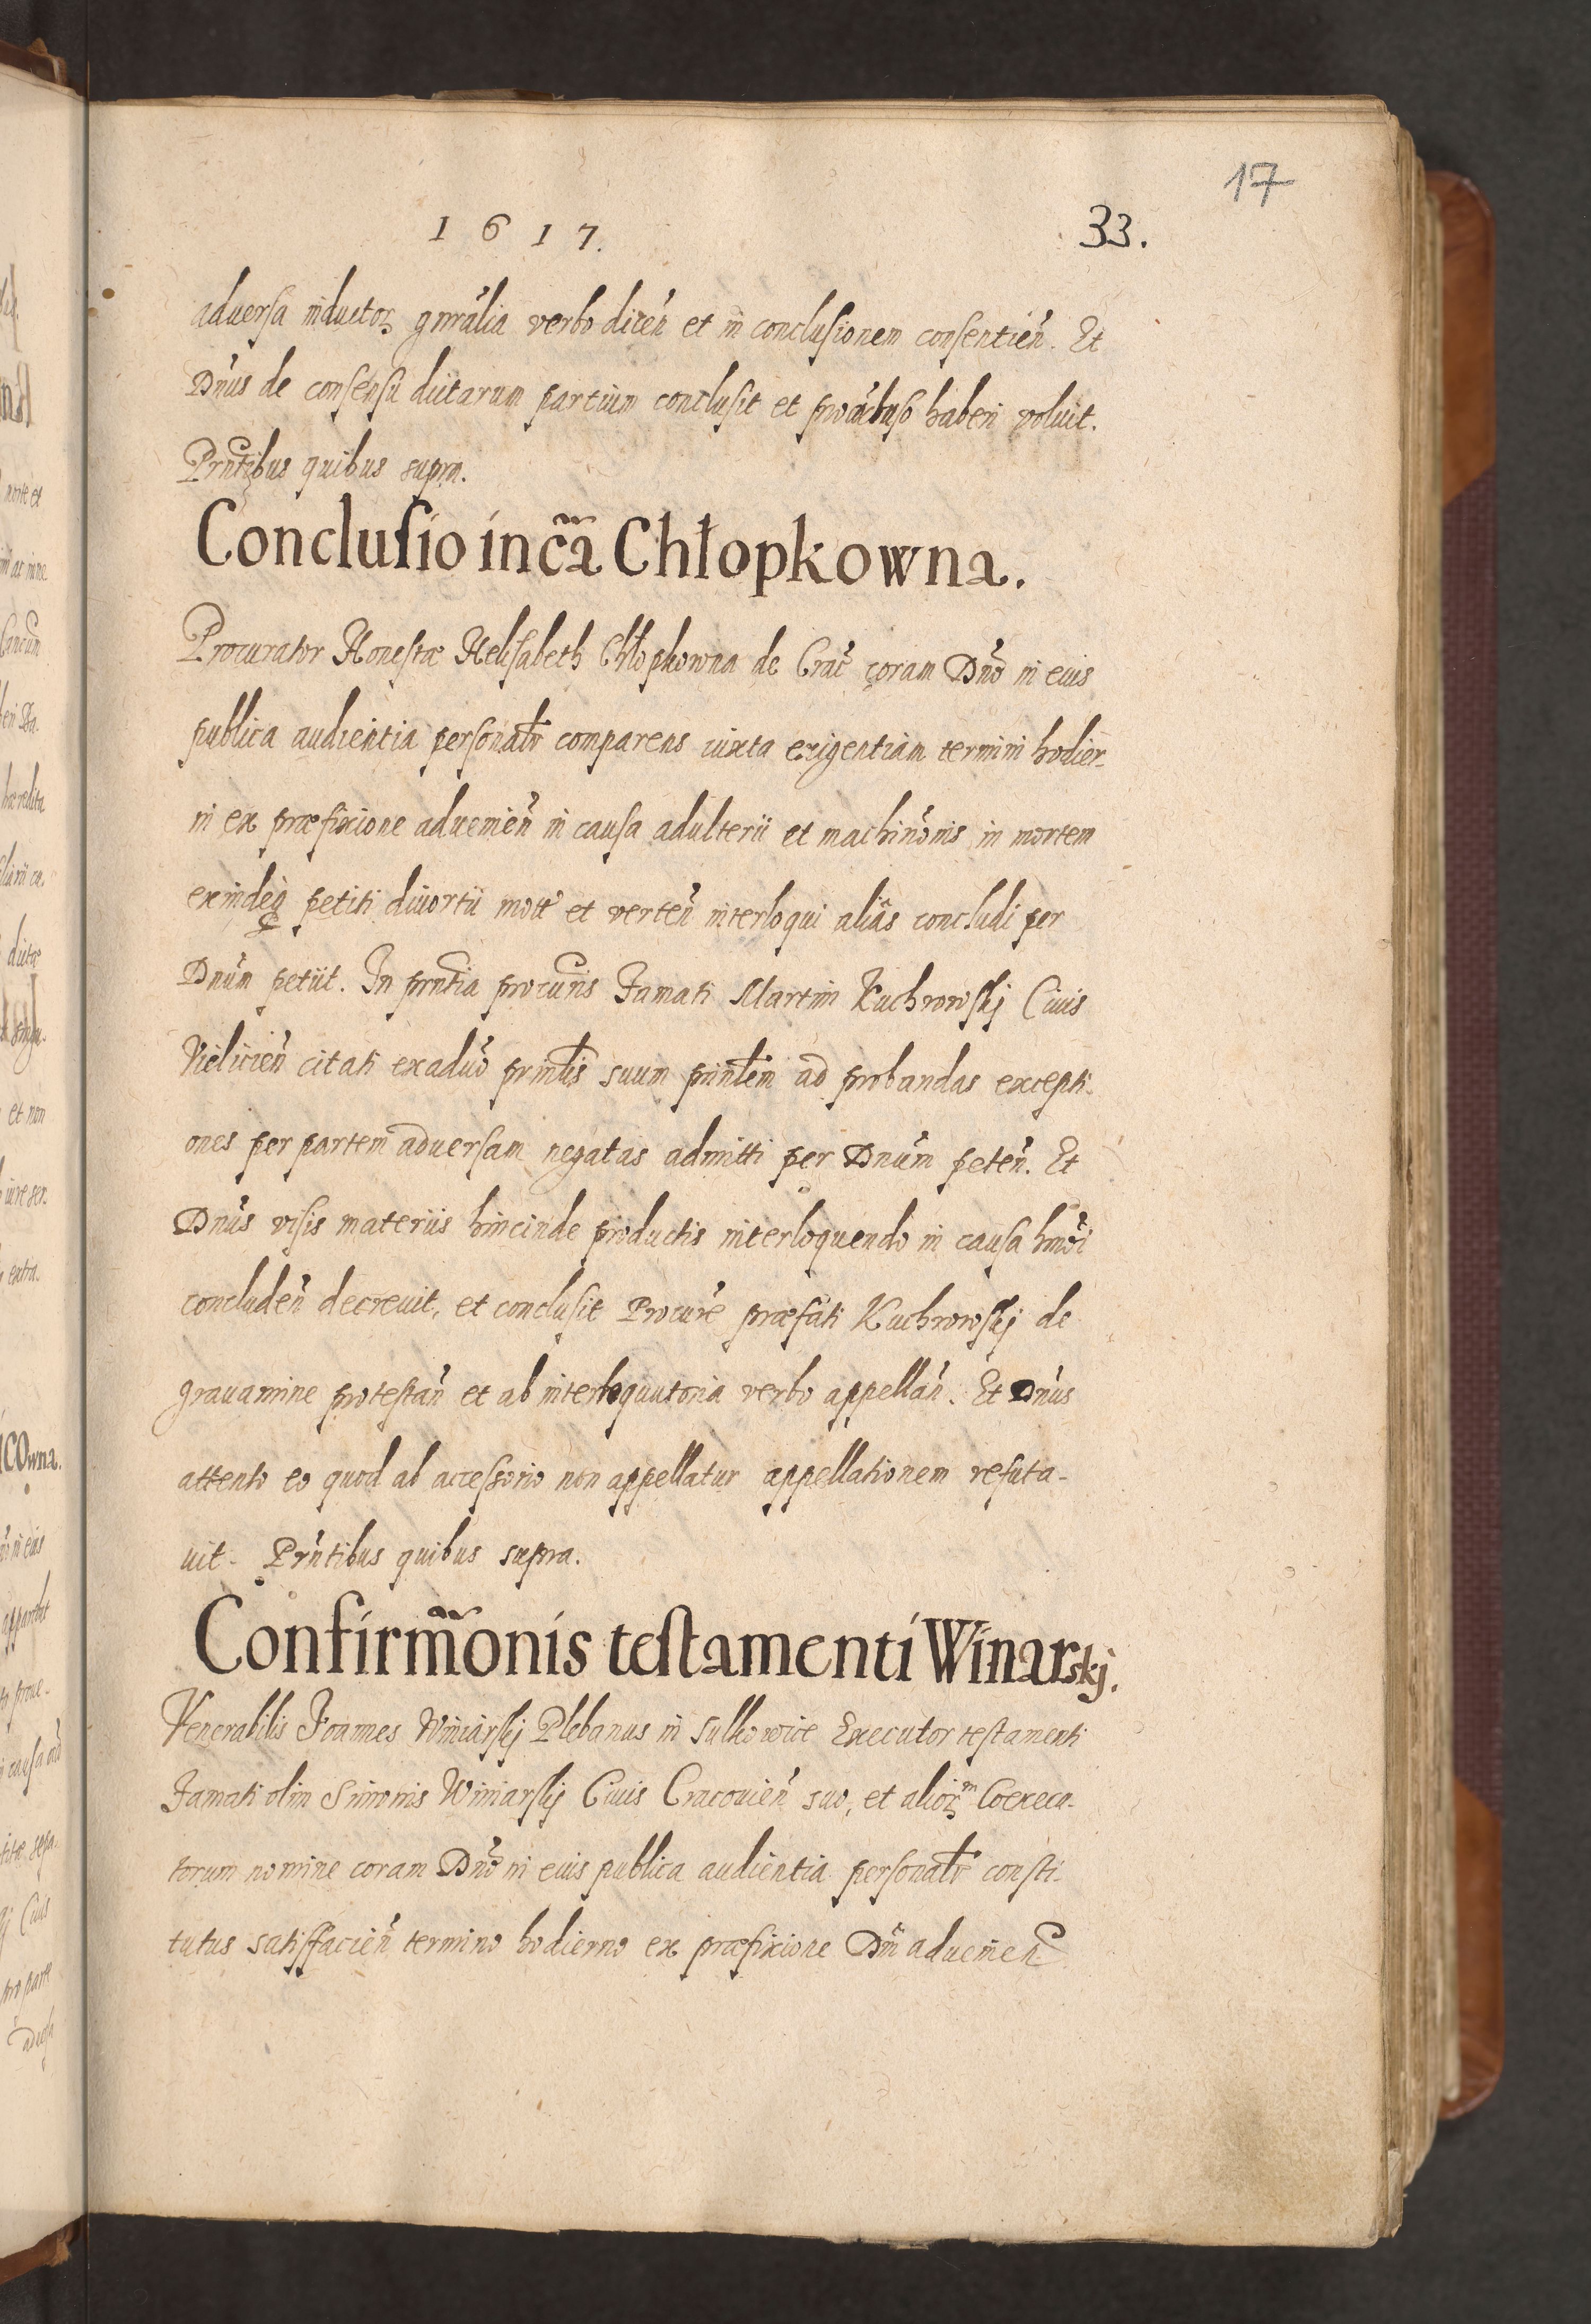 17
1617.
33.
aduersa inductoꝝ gnrālia verbo dicēn et in conclusionem consentiēn. Et
Dnūs de consensu dictarum partium conclusit et haberi voluit.
Prntibus quibus supra.
Conclusio in cã Chłopkowna.
Procurator Honestæ Helisabeth Chłopkowna de Crac̄ coram Dnō in eius
publica audientia personalr̄ comparens iuxta exigentiam termini hodier-
ni ex præfixione adueniēn in causa adulterii et machinōnis in mortem
exindeq petiti diuortii mott̄ et vertēn interloqui aliās concludi per
Dnūm petiit. In prntia procuris Famati Martini Kuchrowskj Ciuis
Vieliciēn citati exaduō prinlis suum prinlem ad probandas excepti-
ones per partem aduersam negatas admitti per Dnūm petēn. Et
Dnūs visis materiis hincinde productis interloquendo in causa hmōi
concludēn decreuit, et conclusit Procurē præfati Kuchrowskj de
grauamine protestān et ab interloquutoria verbo appellān. Et Dnūs
attento eo quod ab accessorio non appellatur appellationem refuta-
uit. Prntibus quibus supra.
Confirm̃onis testamenti Winarskj.
Venerabilis Joannes Winiarskj Plebanus in Sulkowice Executor testamenti
Famati olim Simonis Winiarskj Ciuis Cracouiēn suo, et alioꝝm Coexecu-
torum nomine coram Dnō in eius publica audientia personalr̄ consti-
tutus satisffaciēn termino hodierno ex præfixione Dnī adueniēn